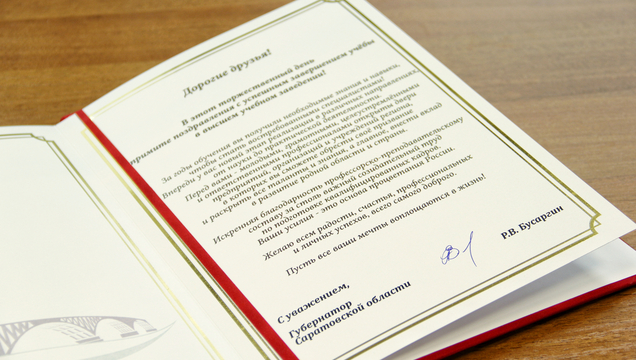 Дорогие друзья!
В этот торжественный день
примите поздравления с успешным завершением учёбы
в высшем учебном заведении!
За годы обучения вы получили необходимые знания и навыки,
чтобы стать востребованными специалистами!
Впереди у вас новый этап реализации в различных направлениях,
от науки до практической деятельности.
Перед вами - молодыми, грамотными, целеустремлёнными
и ответственными профессионалами открыты двери
предприятий, организаций и учреждений региона,
в которых вы сможете обрести своё призвание
и раскрыть все таланты и знания, а главное, внести вклад
в развитие родной области и страны.
Искренняя благодарность профессорско-преподавательскому
составу за столь важный созидательный труд
по подготовке квалифицированных кадров.
Ваши усилия - это основа процветания России.
Желаю всем радости, счастья, профессиональных
и личных успехов, всего самого доброго.
Пусть все ваши мечты воплощаются в жизнь!
С уважением,
Губернатор
Саратовской области
Р.В. Бусаргин